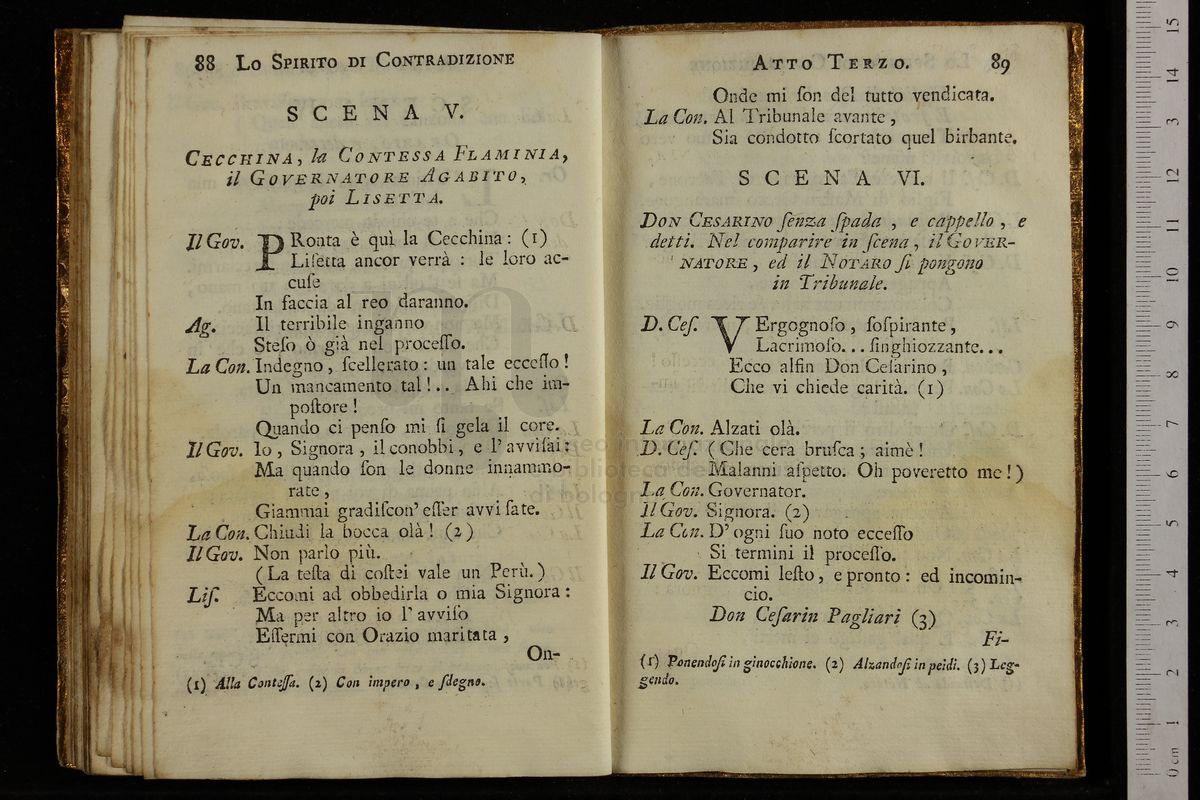 88 Lo Spirito di Contradizione
SCENA V.
Cecchina, la Contessa Flaminia,
il Governatore Agabito,
poi Lisetta.
Il Gov. PRonta è quì la Cecchina: (1)
Liſetta ancor verrà : le loro ac-
cuſe
In faccia al reo daranno.
Ag. Il terribile inganno
Steſo ò già nel proceſſo.
La Con. Indegno, ſcellerato: un tale ecceſſo!
Un mancamento tal!.. Ahi che im-
poſtore!
Quando ci penſo mi ſi gela il core.
Il Gov. Io, Signora, il conobbi, e l' avviſai:
Ma quando ſon le donne innammo-
rate,
Giammai gradiſcon' eſſer avviſate.
La Con. Chiudi la bocca olà! (2)
Il Gov. Non parlo più.
(La teſta di coſtei vale un Perù.)
Liſ. Eccomi ad obbedirla o mia Signora:
Ma per altro io l' avviſo
Eſſermi con Orazio maritata,
On-
(1) Alla Conteſſa. (2) Con impero, e ſdegno.
Atto Terzo. 89
Onde mi ſon del tutto vendicata.
La Con. Al Tribunale avante,
Sia condotto ſcortato quel birbante.
SCENA VI.
Don Cesarino ſenza ſpada, e cappello, e
detti. Nel comparire in ſcena, il Gover-
natore, ed il Notaro ſi pongono
in Tribunale.
D. Ceſ. VErgognoſo, ſoſpirante,
Lacrimoſo... ſinghiozzante...
Ecco alfin Don Ceſarino,
Che vi chiede carità. (1)
La Con. Alzati olà.
D. Ceſ. (Che cera bruſca; aimè!
Malanni aſpetto. Oh poveretto me!)
La Con. Governator.
Il Gov. Signora. (2)
La Con. D' ogni ſuo noto ecceſſo
Si termini il proceſſo.
Il Gov. Eccomi leſto, e pronto: ed incomin-
cio.
Don Ceſarin Pagliari (3)
Fi-
(1) Ponendoſi in ginocchione. (2) Alzandoſi in peidi. (3) Leg-
gendo.